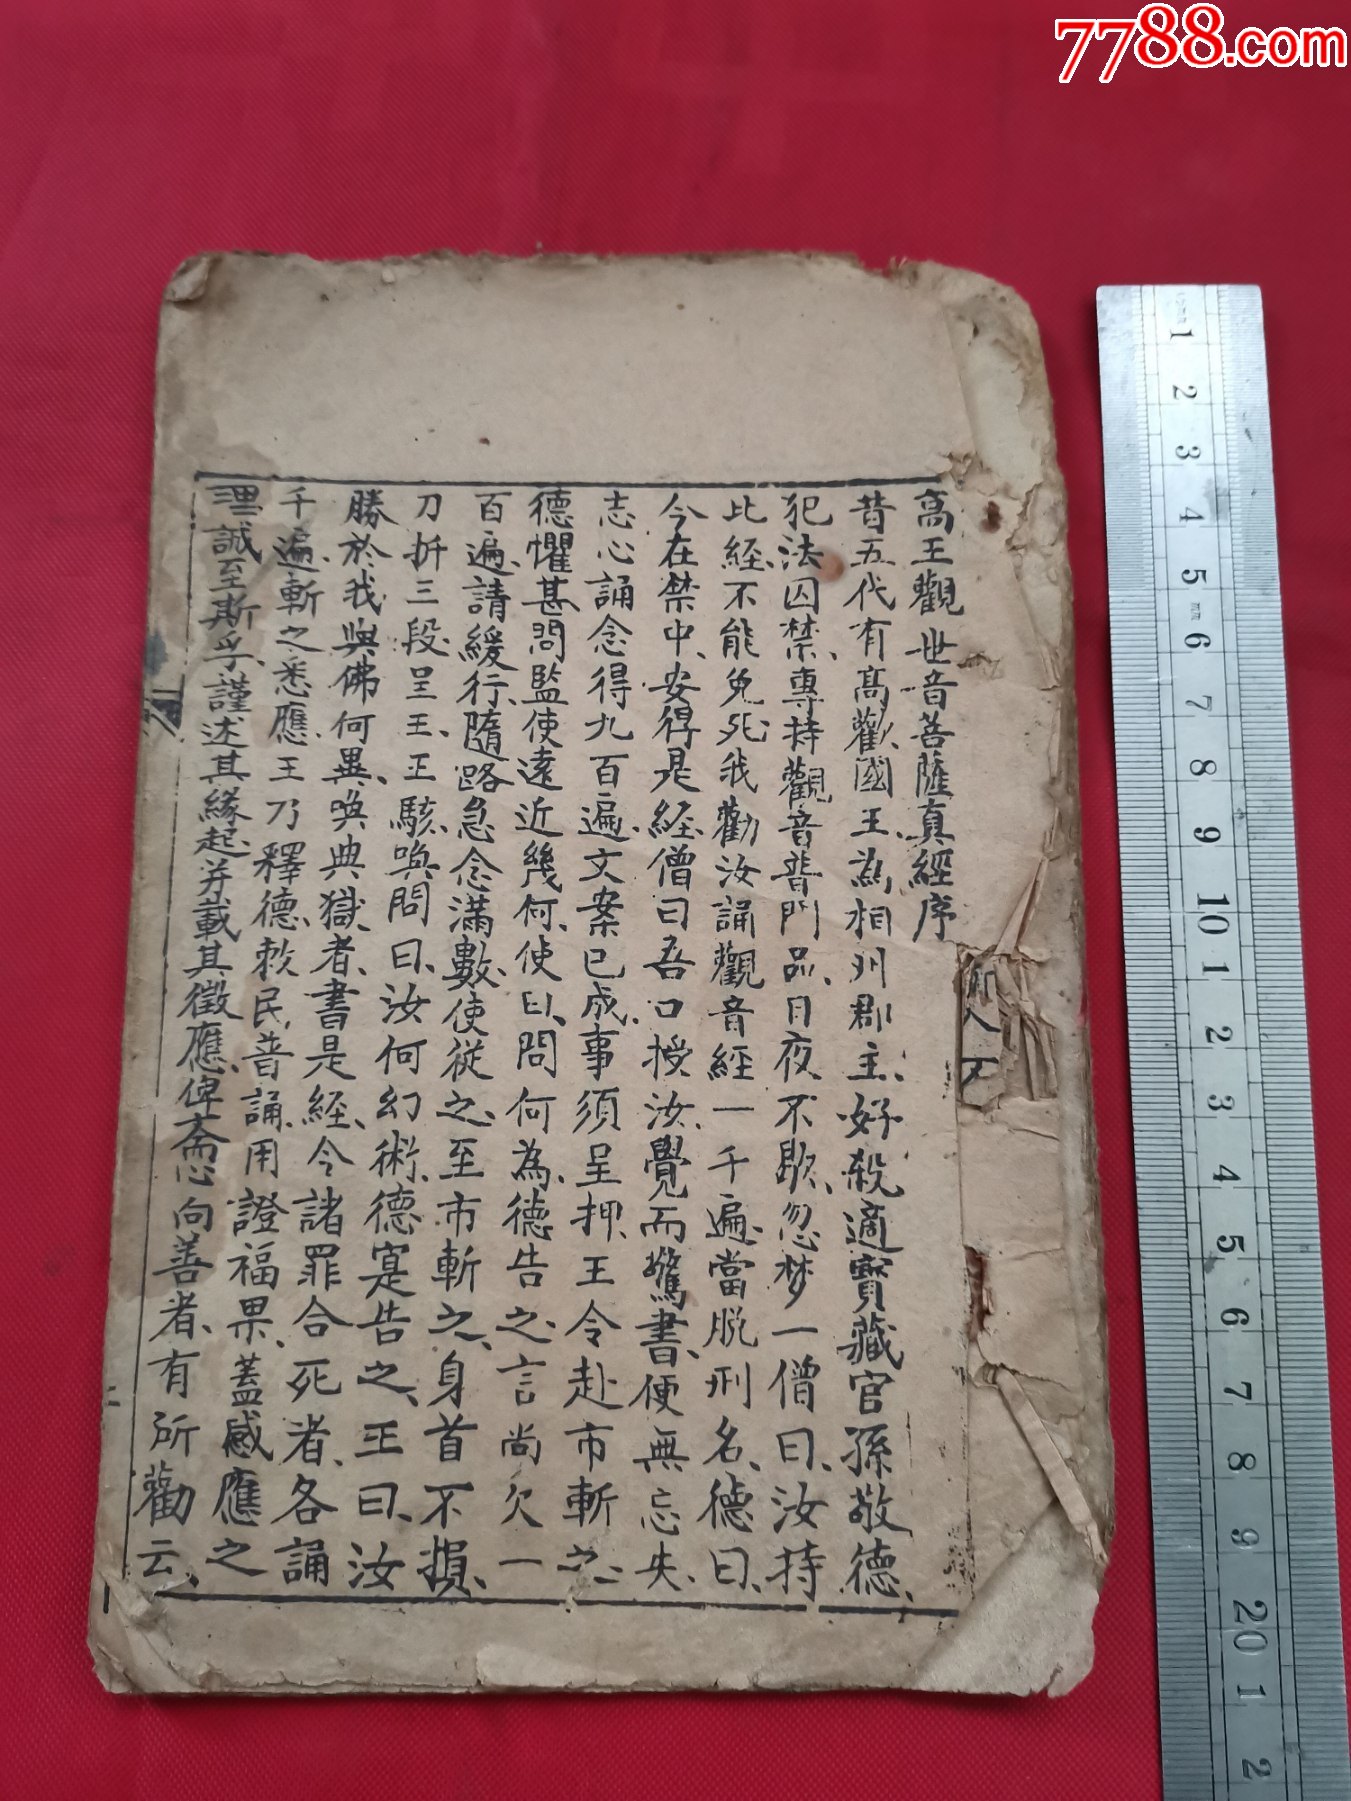 7788.com
高王觀世音菩薩真經序
昔五代有高歡國王為相州郡主、好殺適寳藏官孫敬德、
犯法囚禁、專持觀音普門品、日夜不歇、忽梦一僧曰、汝持
此經、不能免死、我勸汝誦觀音經一千遍、當脱刑名、德曰、
今在禁中、安得是經、僧曰吾口授汝、覺而驚書、便無忘失、
志心誦念得九百遍、文案已成、事須呈押、王令赴市斬之、
德懼甚問監使遠近幾何、使曰、問何為、德告之、言尚欠一
百遍、請緩行、隨路急念滿數、使從之、至市斬之、身首不損、
刀折三段、呈王、王駭、喚問曰、汝何幻術、德寔告之、王曰、汝
勝於我、與佛何異、喚典獄者、書是經、令諸罪合死者、各誦
千遍、斬之悉應、王乃釋德、敕民普誦、用證福果、蓋感應之
理、誠至斯乎、謹述其緣起、并載其徵應、俾齋心向善者、有所勸云、
1
2
3
4
5
6
7
8
9
10
1
2
3
4
5
6
7
8
9
20
1
2